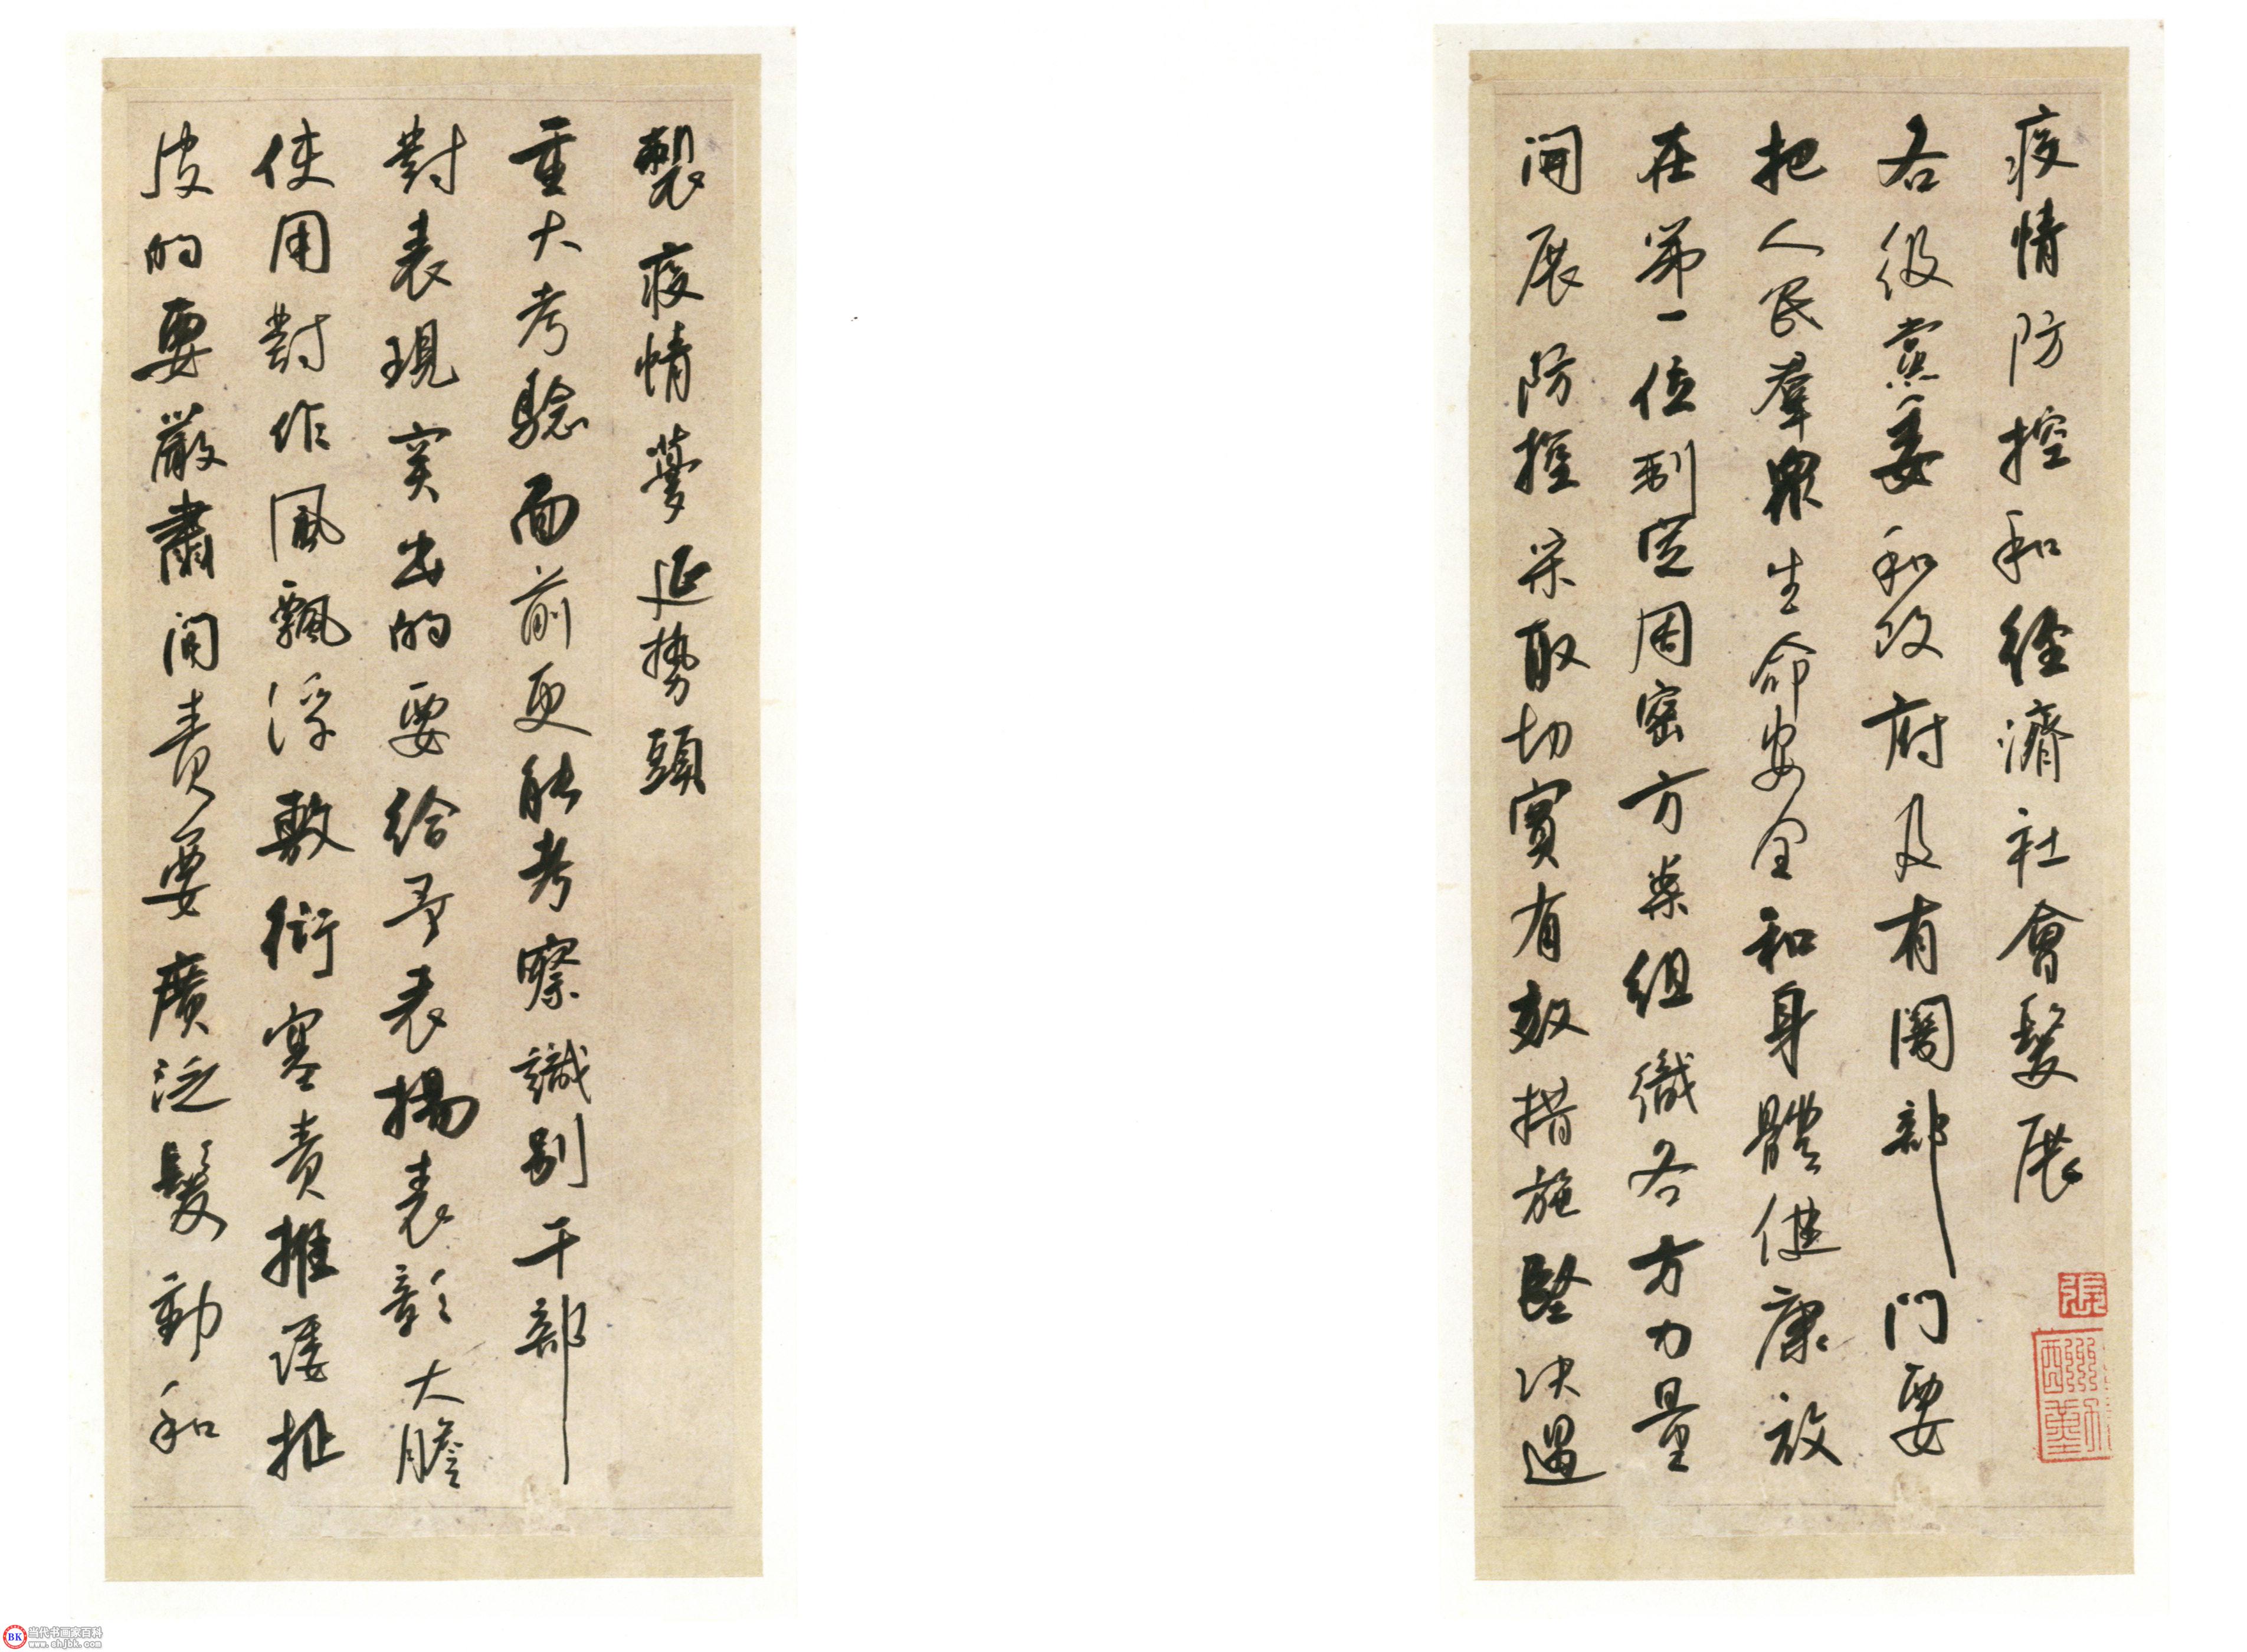 疫情防控和經濟社會髮展
各级黨委和政府及有關部門要
把人民羣衆生命安全和身體健康放
在第一位制定周密方案組織各方力量
開展防控采取切實有效措施堅决遏
製疫情蔓延勢頭
重大考驗面前更能考察識别干部
對表現突出的要給予表揚表彰大膽
使用對作風飄浮敷衍塞責推諉扯
皮的要嚴肅問責要廣泛髮動和
張
BK 当代书画家百科
www.shjbk.com